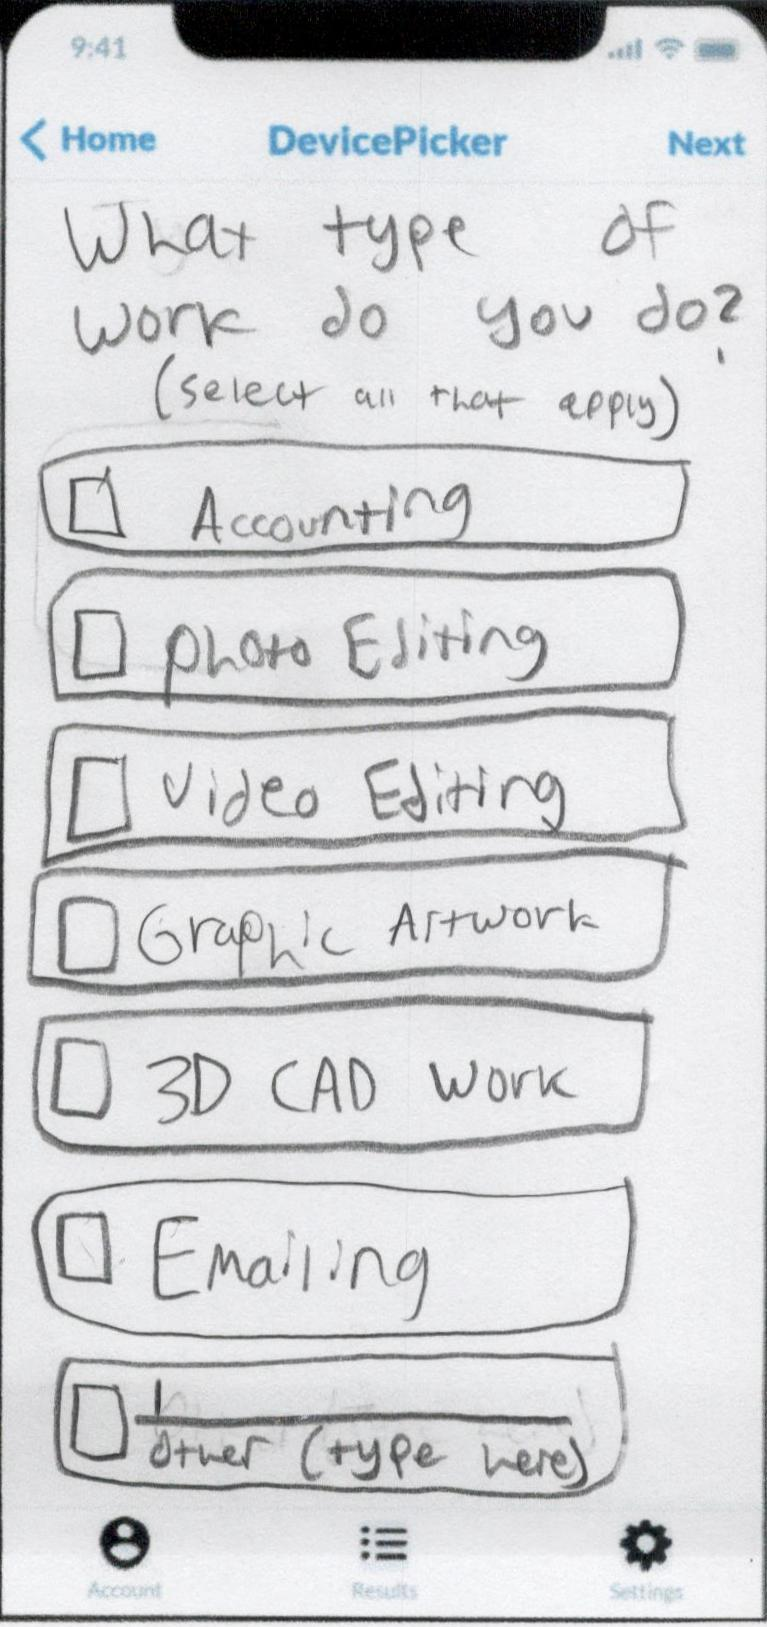 9:41
Home DevicePicker Next
What type of
work do you do?
(select all that apply)
Accounting
photo Editing
Video Editing
Graphic Artwork
3D CAD Work
Emailing
other (type here)
Account Results Settings